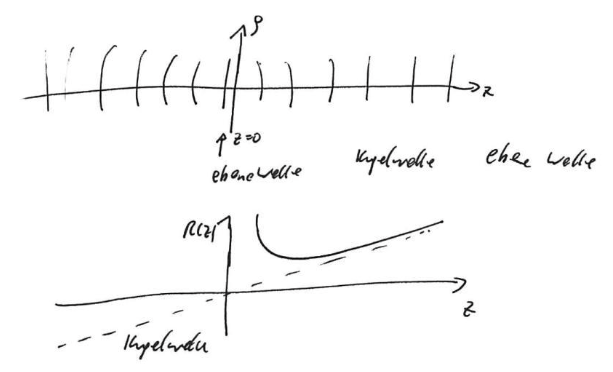 ρ
z
z=0
ebene Welle Kugelwelle ebene Welle
R(z)
z
Kugelwelle